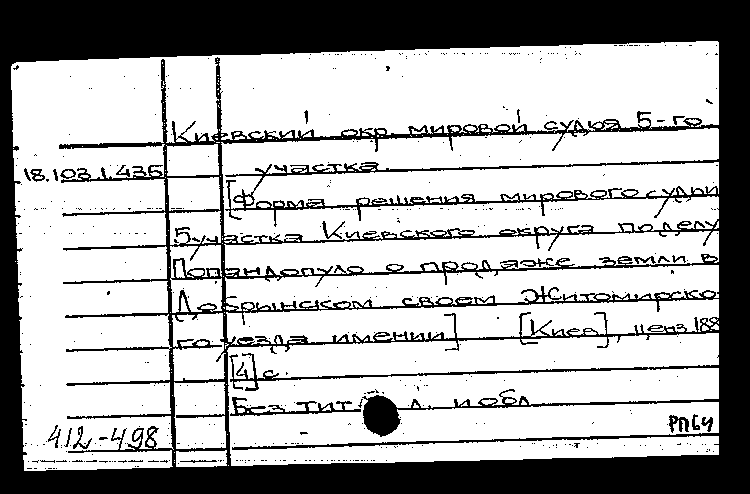 Киевский окр. мировой судья 5-го
18.103.1.436 участка.
[Форма решения мирового судьи
5 участка Киевского округа по делу
Попандопуло о продаже земли в
Добрынском своем Житомирско-
го уезда имении] [Киев], ценз 188
[4] с.
Без тит. л. и обл.
412-498
РПБЧ